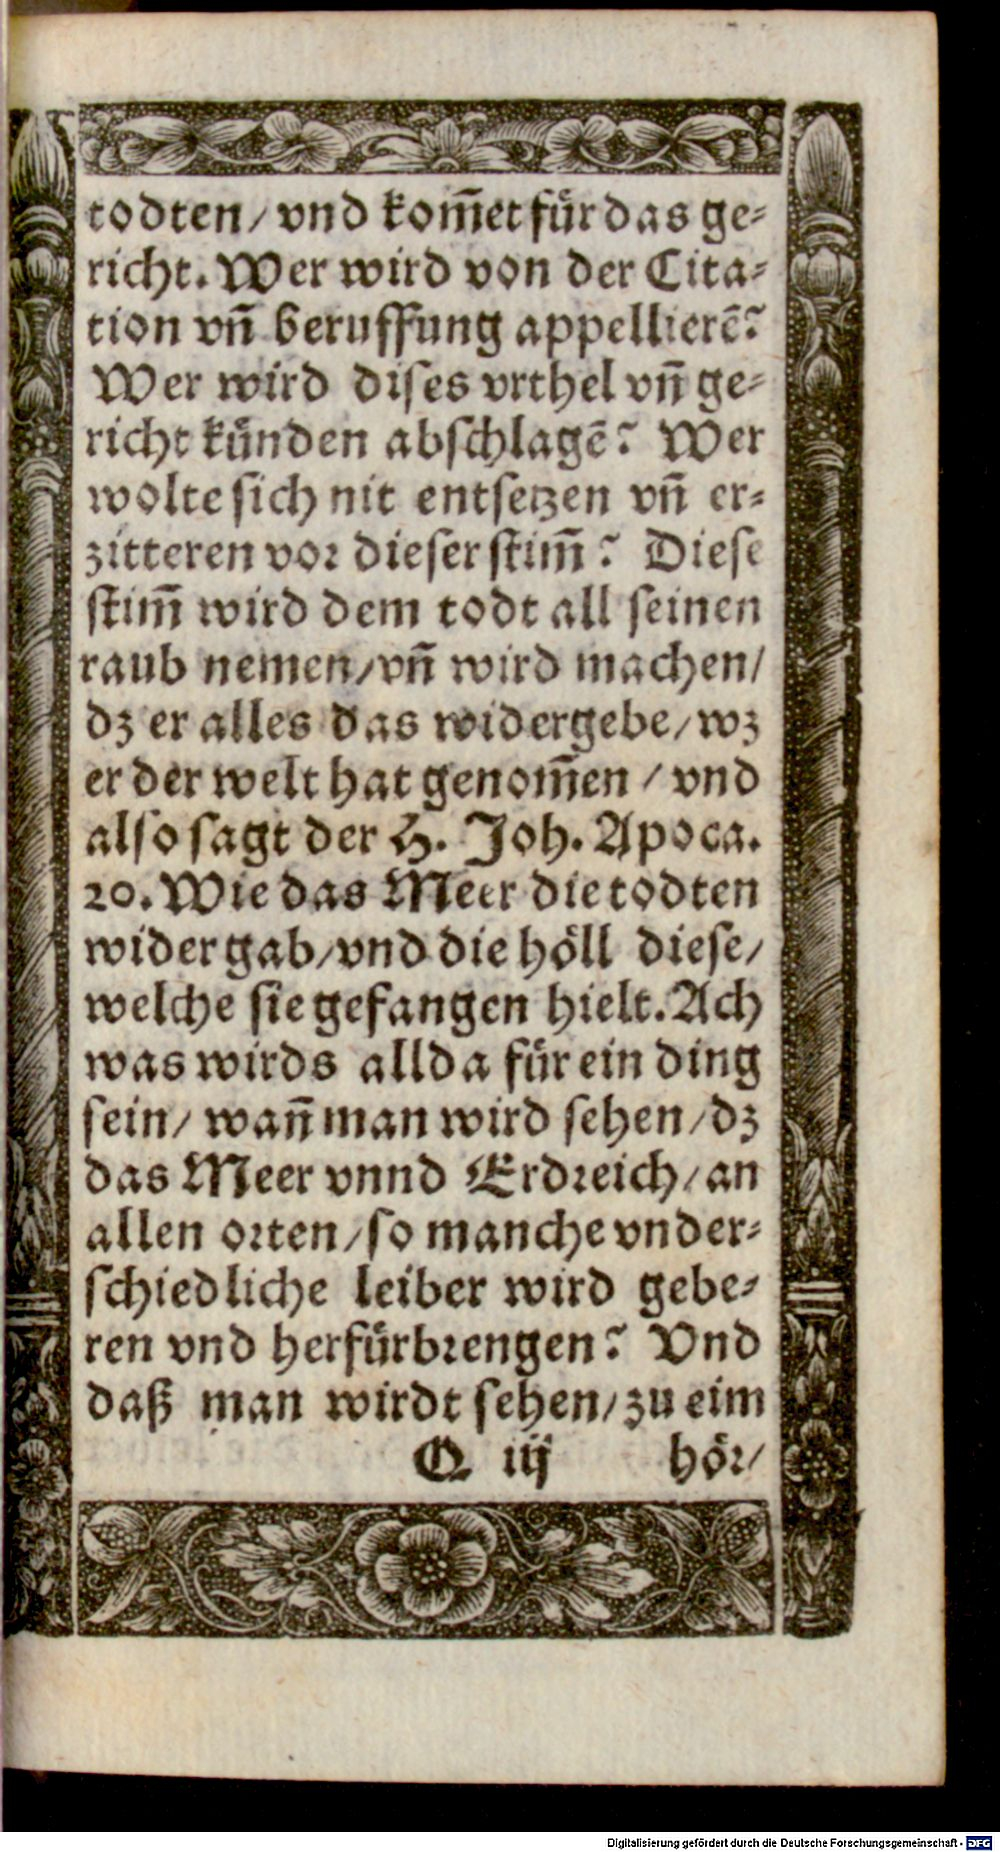 todten/ vnd kom̄et fuͤr das ge⸗
richt. Wer wird von der Cita⸗
tion vn̄ beruffung appellierē?
Wer wird dises vrthel vn̄ ge⸗
richt kuͤnden abschlagē? Wer
wolte sich nit entsetzen vn̄ er⸗
zitteren vor dieser stim̄? Diese
stim̄ wird dem todt all seinen
raub nemen/ vn̄ wird machen/
dz er alles das widergebe/ wz
er der welt hat genom̄en / vnd
also sagt der H. Joh. Apoca.
20. Wie das Meer die todten
wider gab/ vnd die hoͤll diese/
welche sie gefangen hielt. Ach
was wirds allda fuͤr ein ding
sein/ wan̄ man wird sehen/ dz
das Meer vnnd Erdreich/ an
allen orten/ so manche vnder⸗
schiedliche leiber wird gebe⸗
ren vnd herfuͤrbrengen? Vnd
daß man wirdt sehen/ zu eim
Q iij hoͤr/
Digitalisierung gefördert durch die Deutsche Forschungsgemeinschaft - DFG